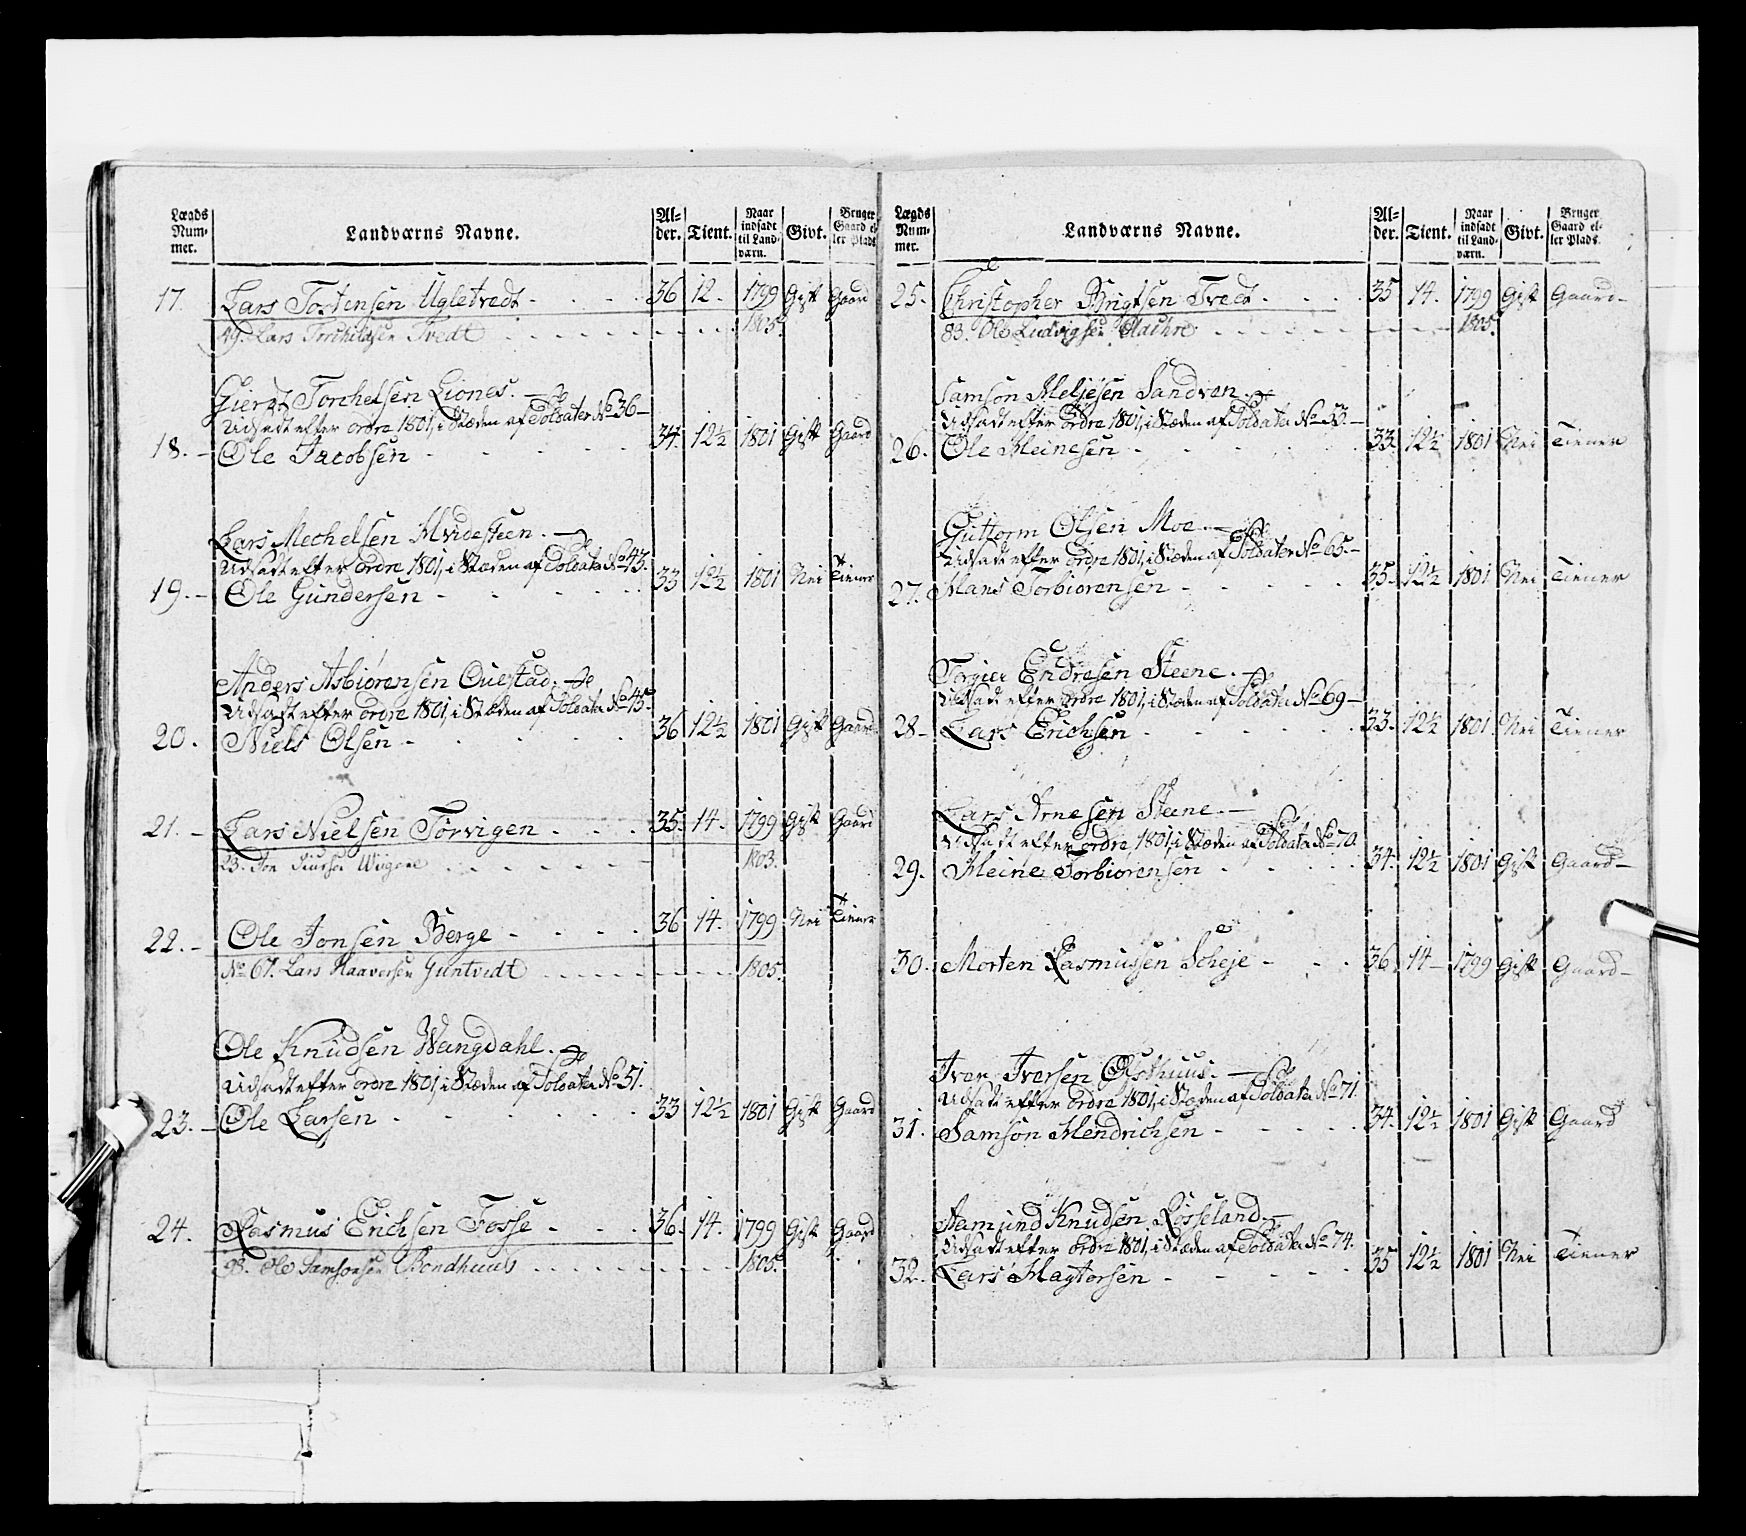 Lægds Num- mer. Landværns Navne. Al- der. Tient. Naar indsadt til Land- værn. Givt. Bruger Gaard el- ler Plads
17. Lars Tostensen Ugletvedt 36 12. 1799 Gift Gaard
49. Lars Torchildsen Tvedt 1805.
Giert Torchelsen Liones.
Udsadt efter ordre 1801, i Stæden af Soldater No 36
18. Ole Jacobsen 34. 12½ 1801 Gift Gaard
Lars Mechelsen Hvidesteen.
Udsadt efter ordre 1801, i Stæden af Soldater No 43.
19. Ole Gundersen 33 12½ 1801 Nei Tiener
Anders Asbiørensen Questad.
Udsadt efter ordre 1801, i Stæden af Soldater No 45.
20. Niels Olsen 36 12½ 1801 Gift Gaard
21. Lars Nielsen Torvigen 35. 14. 1799 Gift Gaard
23. Jon 1803.
22. Ole Jonsen Berge 36 14. 1799 Nei Tiener
No 67. Lars Haaversen Guntvedt 1805.
Ole Knudsen Wangdahl.
Udsadt efter ordre 1801, i Stæden af Soldater No 51.
23. Ole Larsen 33 12½ 1801 Gift Gaard
24. Rasmus Erichsen Fosse 36. 14. 1799 Gift Gaard
98. Ole Samsonsen Bondhuus 1805.
Lægds Num- mer. Landværns Navne. Al- der. Tient. Naar indsadt til Land- værn. Givt. Bruger Gaard el- ler Plads.
25. Christopher Brigtsen Tvedt 35 14. 1799 Gift Gaard
83. Ole Ludvigsen 1805.
Samson Meljesen Sandven
Udsadt efter Ordre 1801, i Stæden af Soldater No 53.
26. Ole Heinesen 33. 12½ 1801 Nei Tiener
Guttorm Olsen Moe
Udsadt efter ordre 1801, i Stæden af Soldater No 65.
27. Hans Torbiørensen 35. 12½ 1801 Nei Tiener
Torgier Endresen Steene.
Udsadt efter ordre 1801, i Stæden af Soldater No 69
28. Lars Erichsen 33. 12½ 1801 Nei Tiener
Lars Arnesen Steene.
Udsadt efter ordre, 1801, i Stæden af Soldater No 70.
29. Heine Torbiørensen 34. 12½ 1801 Gift Gaard
30. Morten Rasmussen Scheje 36. 14 1799 Gift Gaard
Iver Iversen Østhuus.
Udsadt efter ordre 1801, i Stæden af Soldater No 71
31. Samson Hendrichsen 34. 12½ 1801 Gift Gaard
Aamund Knudsen Røsseland.
Udsadt efter ordre 1801, i Stæden af Soldater No 74.
32. Lars Hagtorsen 35 12½ 1801 Nei Tiener